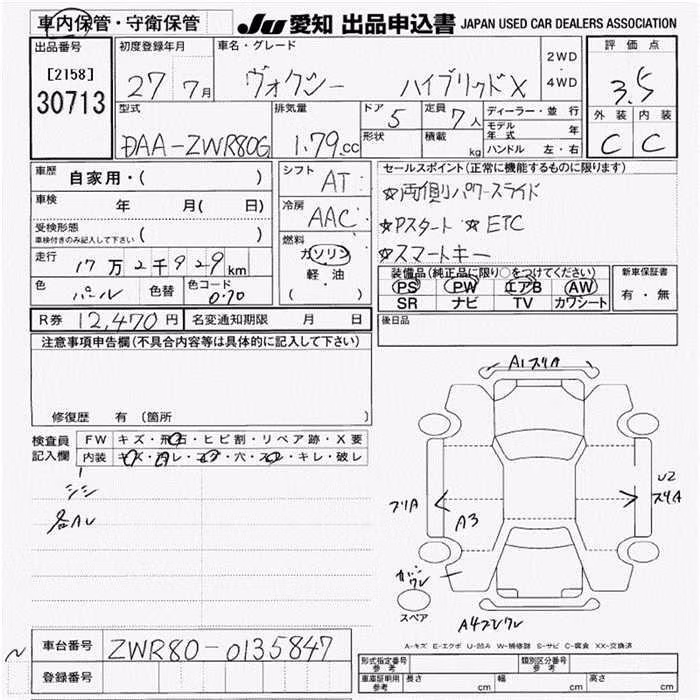 車内保管・守衛保管
JU 愛知 出品申込書 JAPAN USED CAR DEALERS ASSOCIATION
出品番号 初度登録年月 車名・グレード 評価点
[2158]
30713
27 7月 ヴォクシー ハイブリッドX
2WD
・
4WD
3.5
外装 内装
C C
型式 排気量 ドア 定員 ディーラー・並行
DAA-ZWR80G 1.79 cc 5 7人
モデル年式 年
形状 積載 kg ハンドル 左・右
車歴 自家用・( )
車検 年 月( 日)
受検形態
車検付きのみ記入して下さい ( )
走行 17万2千929km
色 パール 色替 色コード 070
シフト AT
冷房 AAC
燃料
ガソリン
軽・油
( ・ )
セールスポイント(正常に機能するものに限ります)
☆両側パワースライド
☆Pスタート ☆ETC
☆スマートキー
装備品(純正品に限り○をつけてください) 新車保証書
PS PW エアB AW 有・無
SR ナビ TV カワシート
R券 12,470円 名変通知期限 月 日
後日品
注意事項申告欄(不具合内容等は具体的に記入して下さい)
修復歴 有 (箇所 )
検査員
記入欄
FW キズ・飛石・ヒビ割・リペア跡・X要
内装 キズ・汚レ・コゲ・穴・スレ・キレ・破レ
シミ
A1スリA
スリA
A3
U2
スリA
スペア
車台番号 ZWR80-0135847
登録番号
A-キズ E-エクボ U-凹み W-補修跡 S-サビ C-腐食 XX-交換済
形式指定番号 参考 類別区分番号 参考
車庫証明用 参考 長さ cm 幅 cm 高さ cm